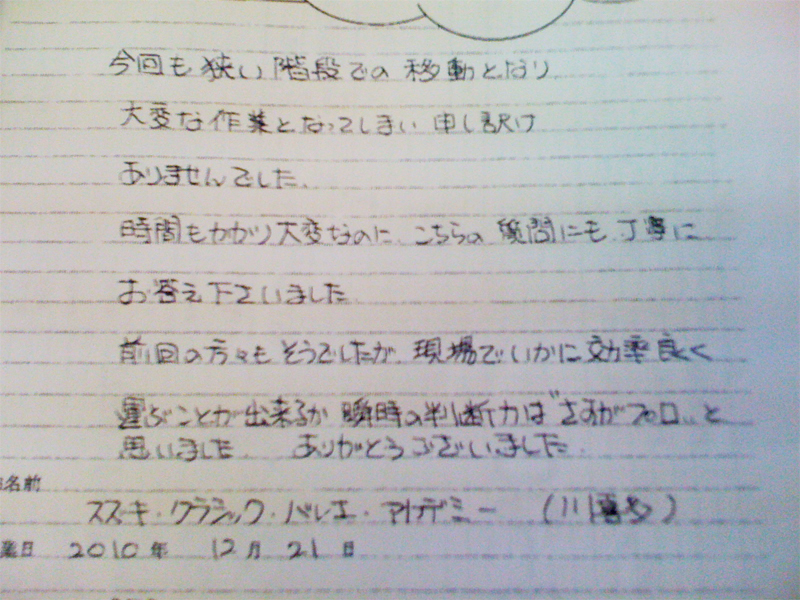 今回も狭い階段での移動となり
大変な作業となってしまい申し訳け
ありませんでした、
時間もかかり大変なのに、こちらの質問にも丁寧に
お答え下さいました
前回の方々もそうでしたが、現場でいかに効率良く
運ぶことが出来るか瞬時の判断力は"さすがプロ"と
思いました ありがとうございました。
名前
スズキ・クラシック・バレエ・アカデミー (川喜多)
業日 2010年 12月 21日